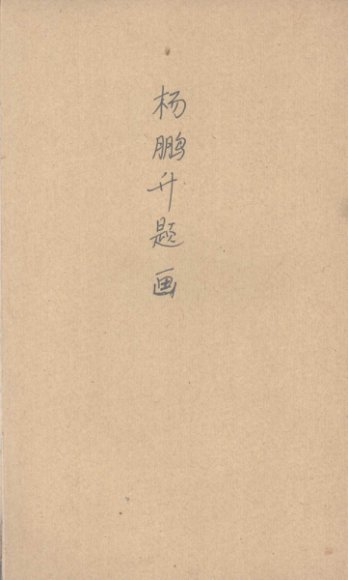 杨鹏升题画